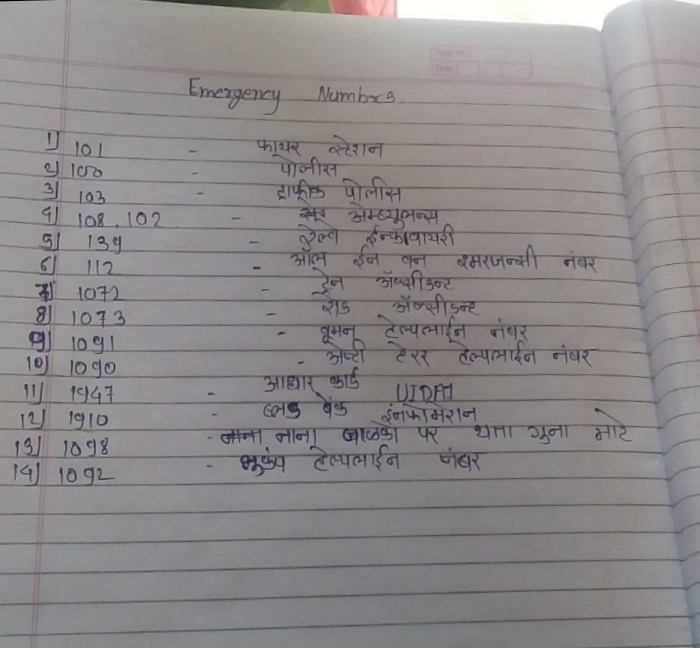 Emergency Numbrs.
1) 101 - फायर स्टेशन
2) 100 - पोलीस
3) 103 - ट्राफीक पोलीस
4) 108, 102 - अेम्ब्युलन्स
5) 139 - रेल्वे ईन्कवायरी
6) 112 - ऑल ईन वन इमरजन्सी नंबर
7) 1072 - ट्रेन अॅक्सीडन्ट
8) 1073 - रोड अॅक्सीडन्ट
9) 1091 - वूमन हेल्पलाईन नंबर
10) 1090 - अेन्टी टेरर हेल्पलाईन नंबर
11) 1947 - आधार कार्ड
12) 1910 - ब्लड बैंक इंनफोर्मेशन
13) 1098 - नाना बाळको पर थता गुना माटे
14) 1092 - भूकंप हेल्पलाईन नंबर